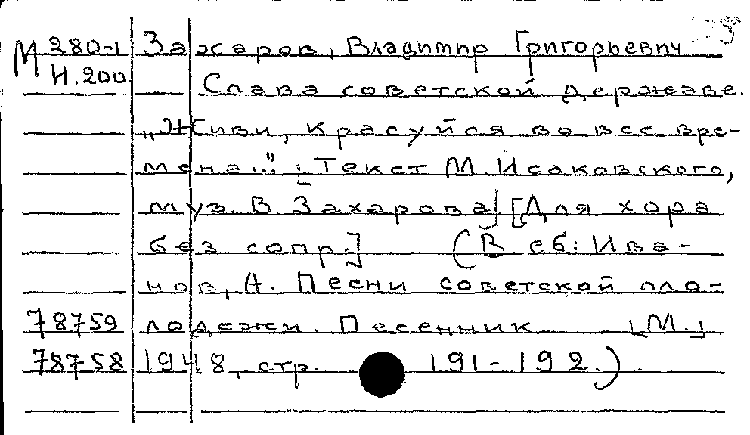 М 280-1 Захаров, Владимир Григорьевич
Н.200 Слава советской державе.
„Живи, красуйся во все вре-
мена..." [Текст М. Исаковского,
муз. В. Захарова] [Для хора
без сопр.] (В сб: Ива-
нов, А. Песни советской мо-
78759 лодежи. Песенник [М.]
78758 1948, стр. 191-192.)